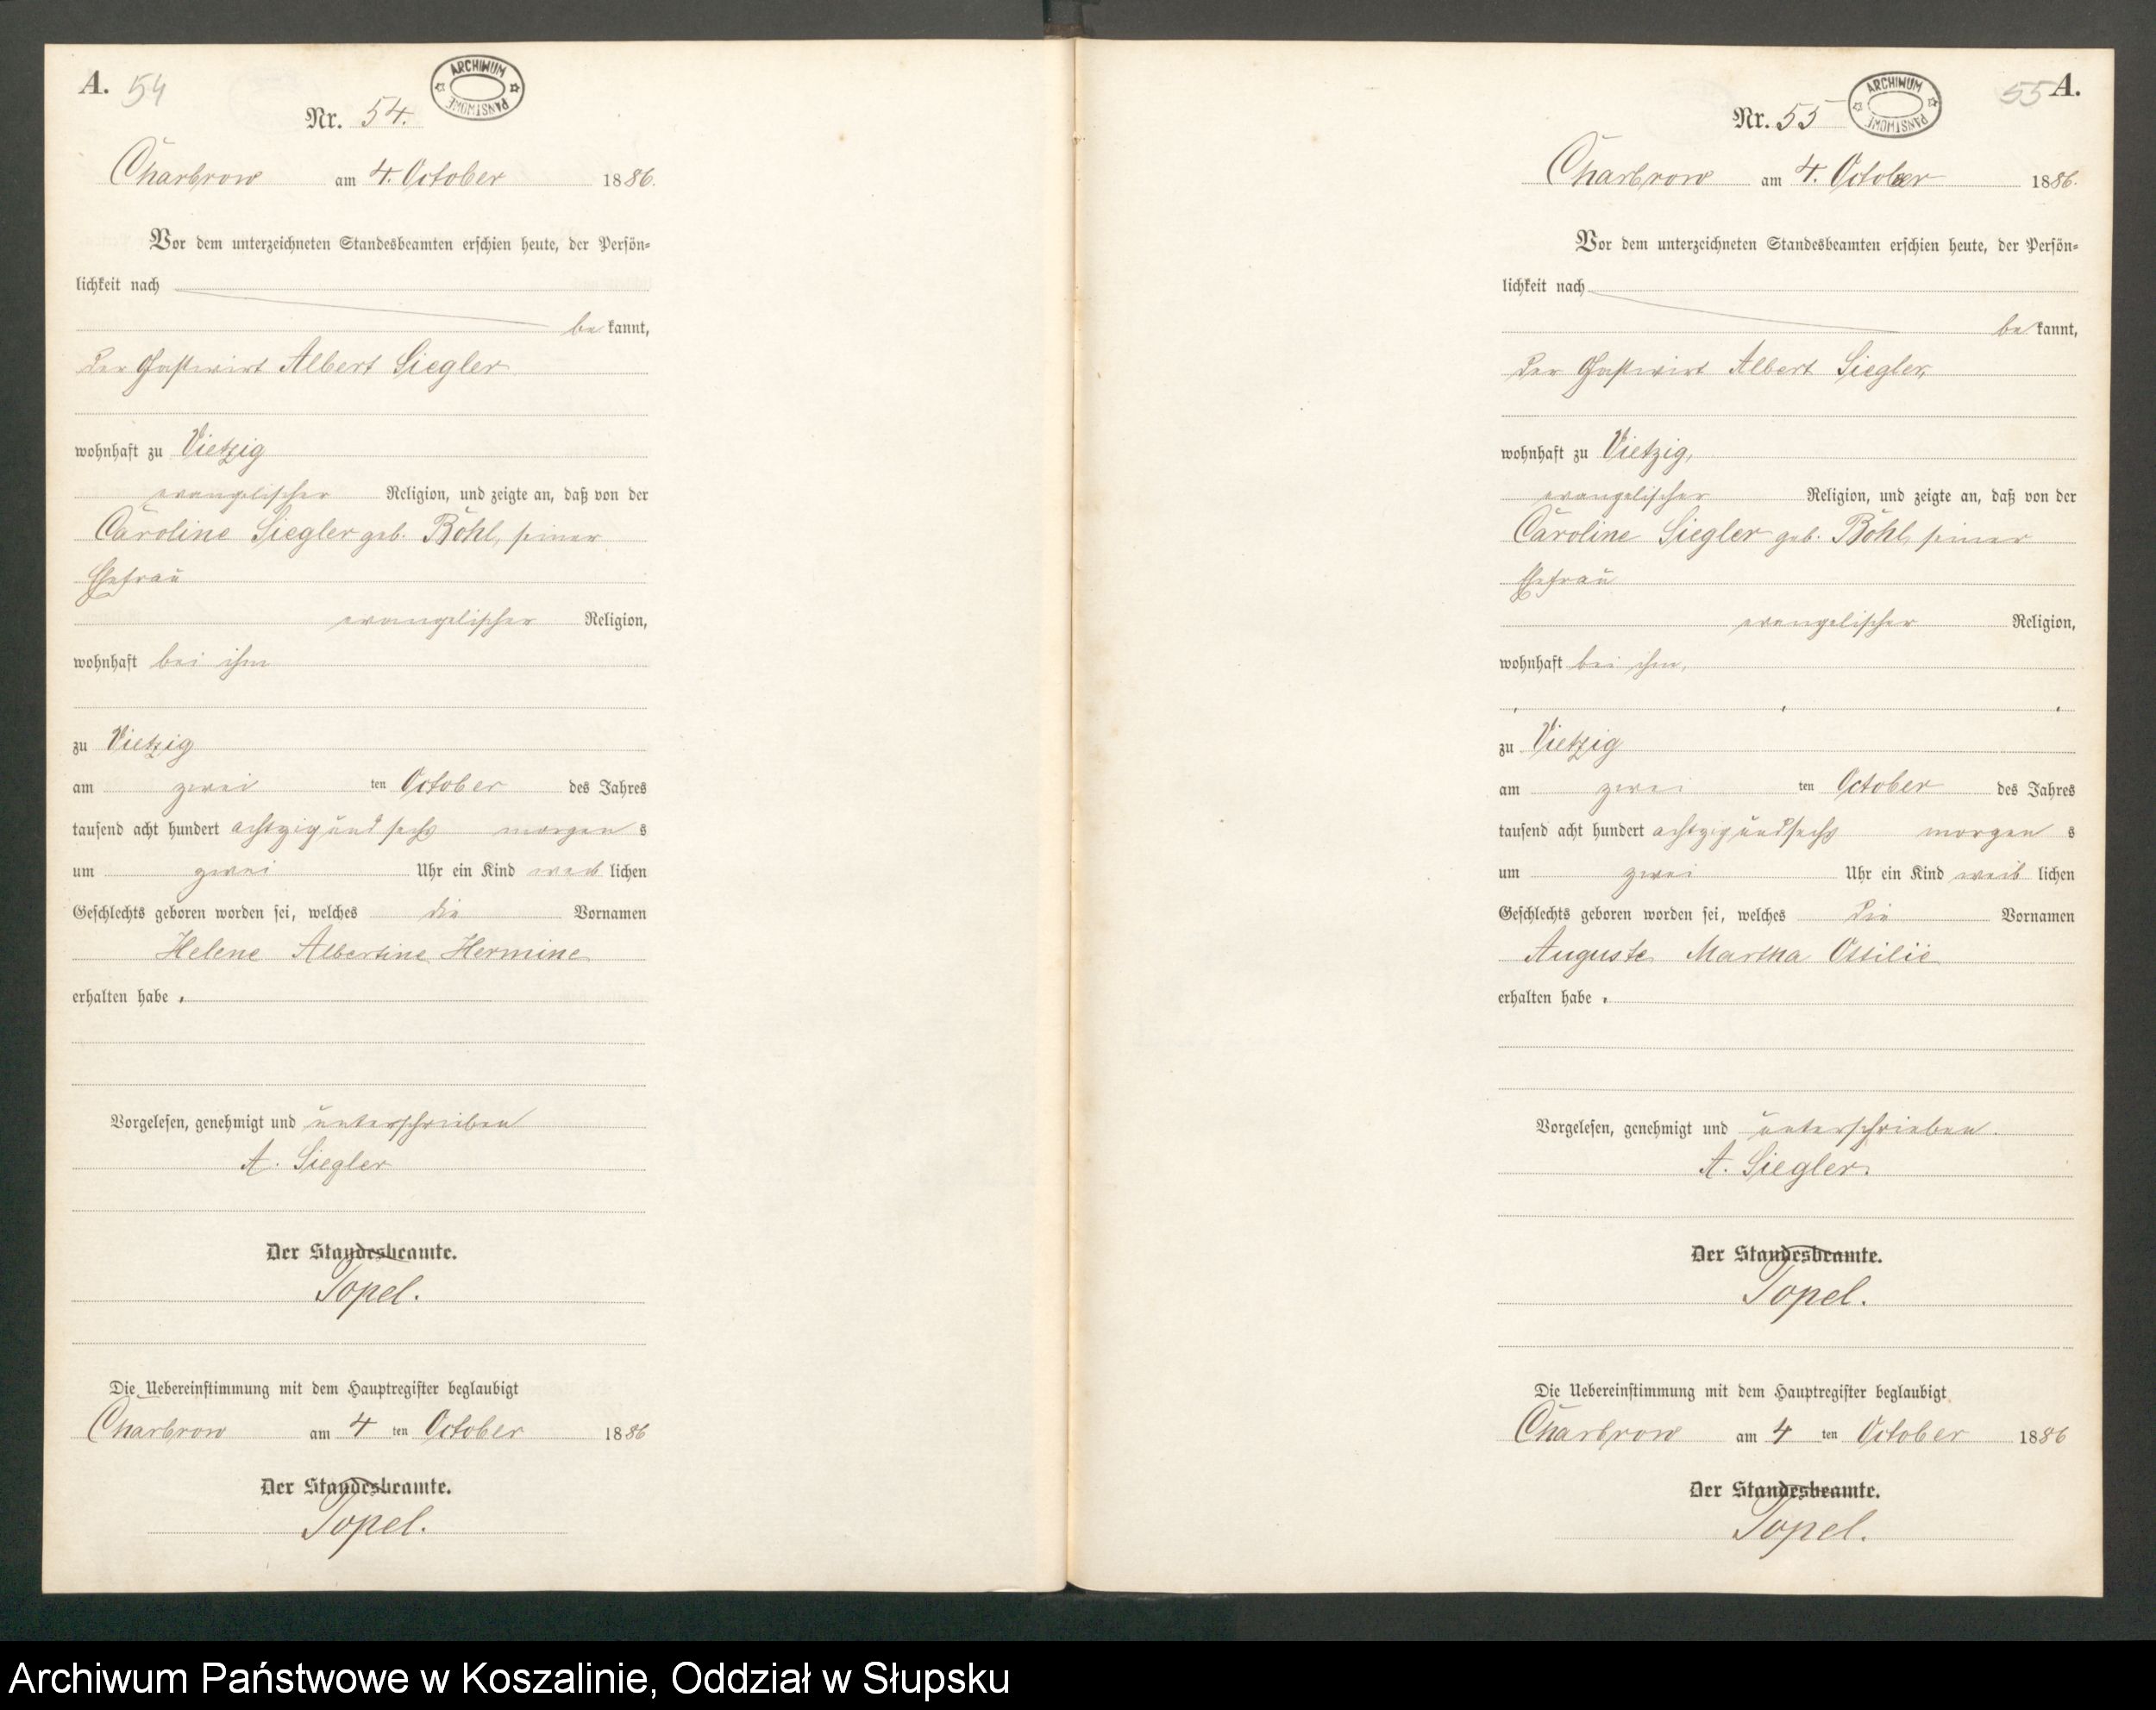 A. 54
ARCHIWUM PAŃSTWOWE
Nr. 54.
Charbrow am 4. October 1886.
Vor dem unterzeichneten Standesbeamten erschien heute, der Persön-
lichkeit nach
be kannt,
der Gastwirt Albert Siegler
wohnhaft zu Vietzig
evangelischer Religion, und zeigte an, daß von der
Caroline Siegler geb. Böhl, seiner
Ehefrau
evangelischer Religion,
wohnhaft bei ihm
zu Vietzig
am zwei ten October des Jahres
tausend acht hundert achtzig und sechs morgen s
um zwei Uhr ein Kind weib lichen
Geschlechts geboren worden sei, welches die Vornamen
Helene Albertine Hermine
erhalten habe.
Vorgelesen, genehmigt und unterschrieben
A. Siegler
Der Standesbeamte.
Topel.
Die Uebereinstimmung mit dem Hauptregister beglaubigt
Charbrow am 4 ten October 1886
Der Standesbeamte.
Topel.
55 A.
ARCHIWUM PAŃSTWOWE
Nr. 55
Charbrow am 4. October 1886.
Vor dem unterzeichneten Standesbeamten erschien heute, der Persön-
lichkeit nach
be kannt,
der Gastwirt Albert Siegler,
wohnhaft zu Vietzig,
evangelischer Religion, und zeigte an, daß von der
Caroline Siegler geb. Böhl, seiner
Ehefrau
evangelischer Religion,
wohnhaft bei ihm,
zu Vietzig
am zwei ten October des Jahres
tausend acht hundert achtzig und sechs morgen s
um zwei Uhr ein Kind weib lichen
Geschlechts geboren worden sei, welches die Vornamen
Auguste Martha Ottilie
erhalten habe.
Vorgelesen, genehmigt und unterschrieben.
A. Siegler.
Der Standesbeamte.
Topel.
Die Uebereinstimmung mit dem Hauptregister beglaubigt
Charbrow am 4 ten October 1886
Der Standesbeamte.
Topel.
Archiwum Państwowe w Koszalinie, Oddział w Słupsku